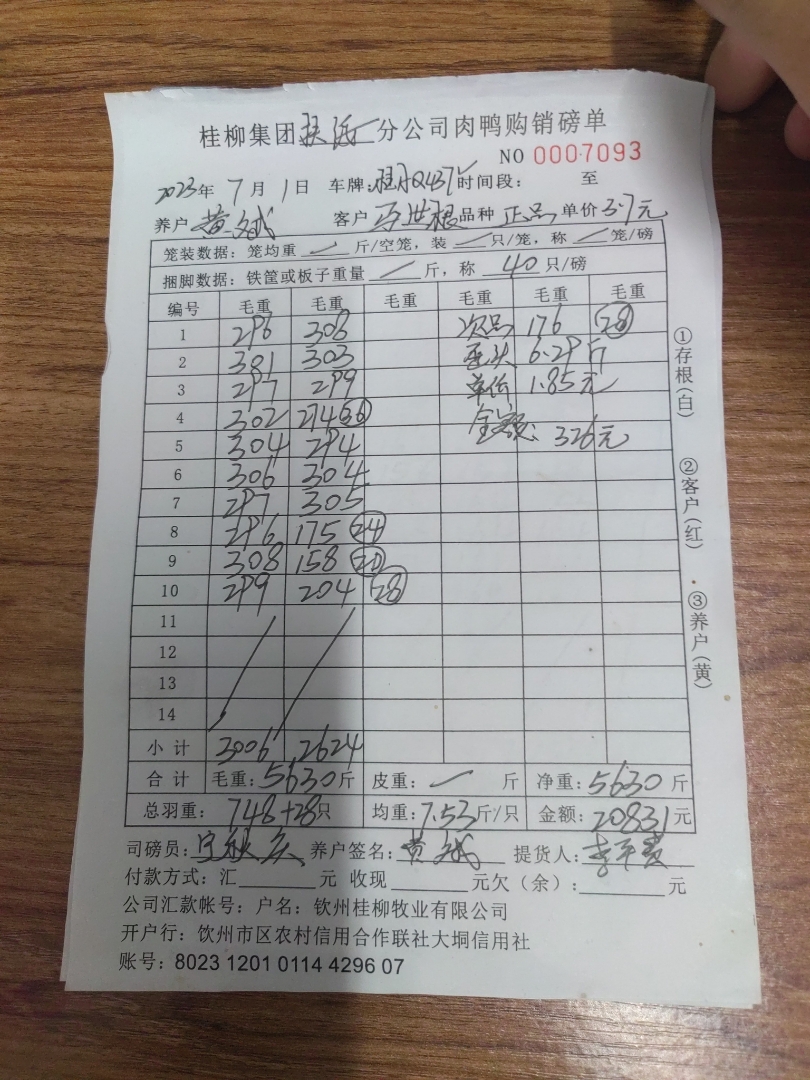 桂柳集团 分公司肉鸭购销磅单
NO 0007093
2023年 7 月 1 日 车牌: 时间段: 至
养户 黄 客户 品种 正品 单价 3.7元
笼装数据: 笼均重 斤/空笼, 装 只/笼, 称 笼/磅
捆脚数据: 铁筐或板子重量 斤, 称 40 只/磅
编号 毛重 毛重 毛重 毛重 毛重 毛重
1 296 308 次品 176 28
2 381 303 重 6.29斤
3 297 299 单价 1.85元
4 302 274 36 金额 326元
5 304 294
6 306 304
7 297 305
8 296 175 24
9 308 158 20
10 299 204 28
11
12
13
14
小 计 3006 2624
合 计 毛重: 5630 斤 皮重: 斤 净重: 5630 斤
总羽重: 748+28只 均重: 7.53斤/只 金额: 20831元
司磅员: 养户签名: 黄 提货人: 李
付款方式: 汇 元 收现 元欠(余): 元
公司汇款帐号: 户名: 钦州桂柳牧业有限公司
开户行: 饮州市区农村信用合作联社大垌信用社
账号: 8023 1201 0114 4296 07
①存根(白)
②客户(红)
③养户(黄)